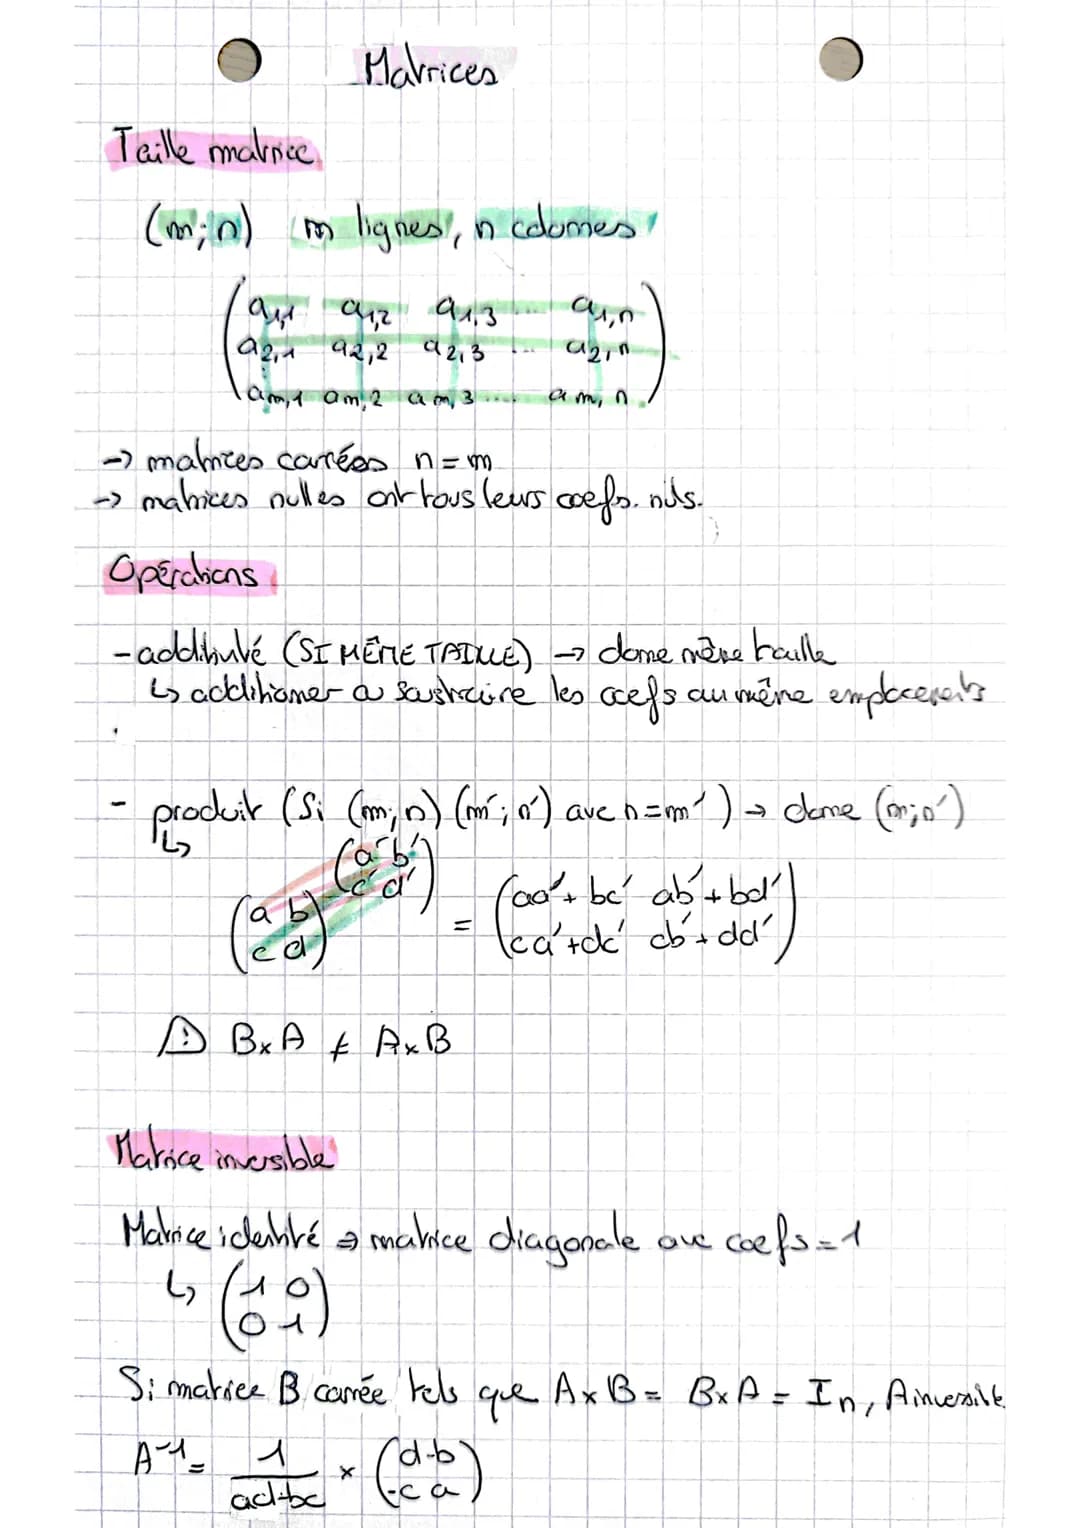 Matrices
Taille matrice
(m;n) m lignes, n colonnes
( a1,1 a1,2 a1,3 ... a1,n )
( a2,1 a2,2 a2,3 ... a2,n )
( am,1 am,2 am,3 .... am,n )
-> matrices carrées n=m
-> matrices nulles ont tous leurs coefs. nuls.
Opérations
- additivité (SI MÊME TAILLE) -> donne même taille
↳ additionner ou soustraire les coefs au même emplacements
- produit (Si (m;n) (m';n') avec n=m') -> donne (m;n')
↳
(a' b')
(c' d')
(a b) = (aa'+bc' ab'+bd')
(c d) (ca'+dc' cb'+dd')
⚠ B×A ≠ A×B
Matrice inversible
Matrice identité → matrice diagonale avec coefs=1
↳ (1 0)
(0 1)
Si matrice B carrée tels que A×B = B×A = In, A inversible
A⁻¹ = 1/(ad-bc) × (d -b)
(-c a)